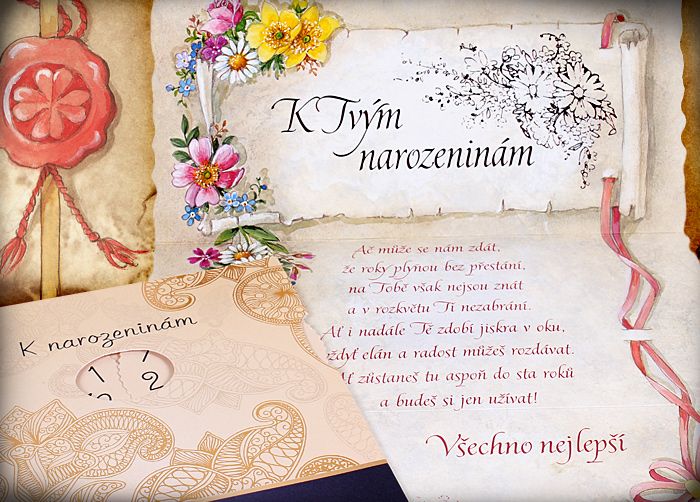 K Tvým
narozeninám
Ač může se nám zdát,
že roky plynou bez přestání,
na Tobě však nejsou znát
a v rozkvětu Ti nezabrání.
Ať i nadále Tě zdobí jiskra v oku,
vždyť elán a radost můžeš rozdávat.
Ať zůstaneš tu aspoň do sta roků
a budeš si jen užívat!
Všechno nejlepší
K narozeninám
1 1
2